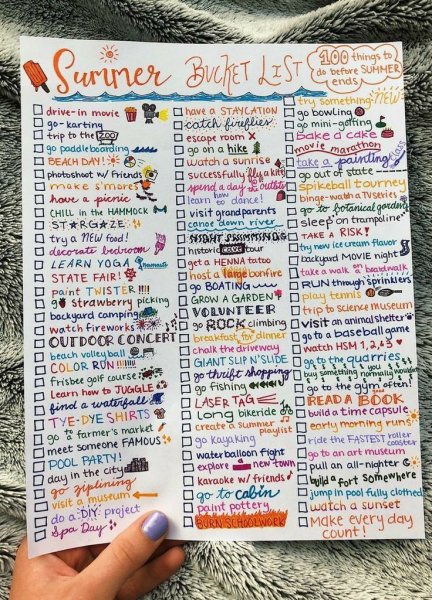 Summer BUCKET LIST
100 things to do before SUMMER ends
drive-in movie
go-karting
trip to the ZOO
go paddleboarding
BEACH DAY!
photoshoot w/ friends
make s'mores
have a picnic
CHILL in the HAMMOCK
STARGAZE
try a NEW food!
decorate bedroom
LEARN YOGA namaste
STATE FAIR!
paint TWISTER!!!!
go strawberry picking
backyard camping
watch fireworks
OUTDOOR CONCERT
beach volleyball
COLOR RUN!!!!
frisbee golf course
learn how to JUGGLE
find a waterfall
TYE-DYE SHIRTS
go 2 a farmer's market
meet someone FAMOUS
POOL PARTY!
day in the city
go ziplining
visit a museum
do a DIY project
Spa Day
have a STAYCATION
catch fireflies
escape room
go on a hike
watch a sunrise
successfully fly a kite
spend a day in the
learn how to dance!
visit grandparents
canoe down river
NIGHT SWIMMING
historic tour
get a HENNA tatoo
host a large bonfire
go BOATING
GROW A GARDEN
VOLUNTEER
go ROCK climbing
breakfast for dinner
chalk the driveway
GIANT SLIP'N'SLIDE
go thrift shopping
go fishing
LASER TAG
long bikeride
create a summer playlist
go kayaking
waterballoon fight
explore a new town
karaoke w/ friends
go to cabin
paint pottery
BURN SCHOOLWORK
try something NEW
go bowling
go mini-golfing
bake a cake
movie marathon
take a painting class
go out of state
spikeball tourney
binge-watch a TV series
go to botanical gardens
sleep on trampoline
TAKE A RISK!
try new ice cream flavor
backyard MOVIE night
take a walk on boardwalk
RUN through sprinklers
play tennis
trip to science museum
visit an animal shelter
go to a baseball game
watch HSM 1,2,+3
go to the quarries
buy something you normally wouldn't
go to the gym often!
READ A BOOK
build a time capsule
early morning runs
ride the FASTEST roller coaster
go to an art museum
pull an all-nighter
build a fort somewhere
jump in pool fully clothed
watch a sunset
Make every day count!